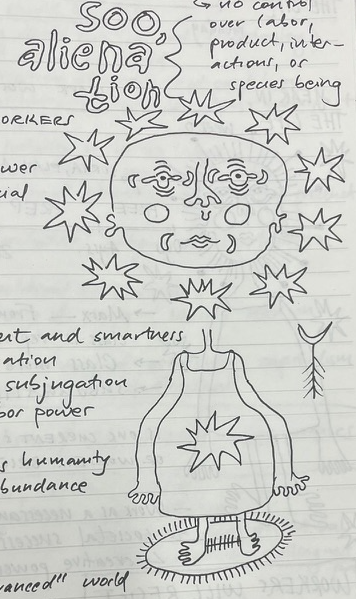 soo,
aliena-
tion
↳ no control
over labor,
product, inter-
actions, or
species being
ORKERS
wer
ial
ent and smartness
ation
subjugation
or power
s humanity
bundance
vanced" world